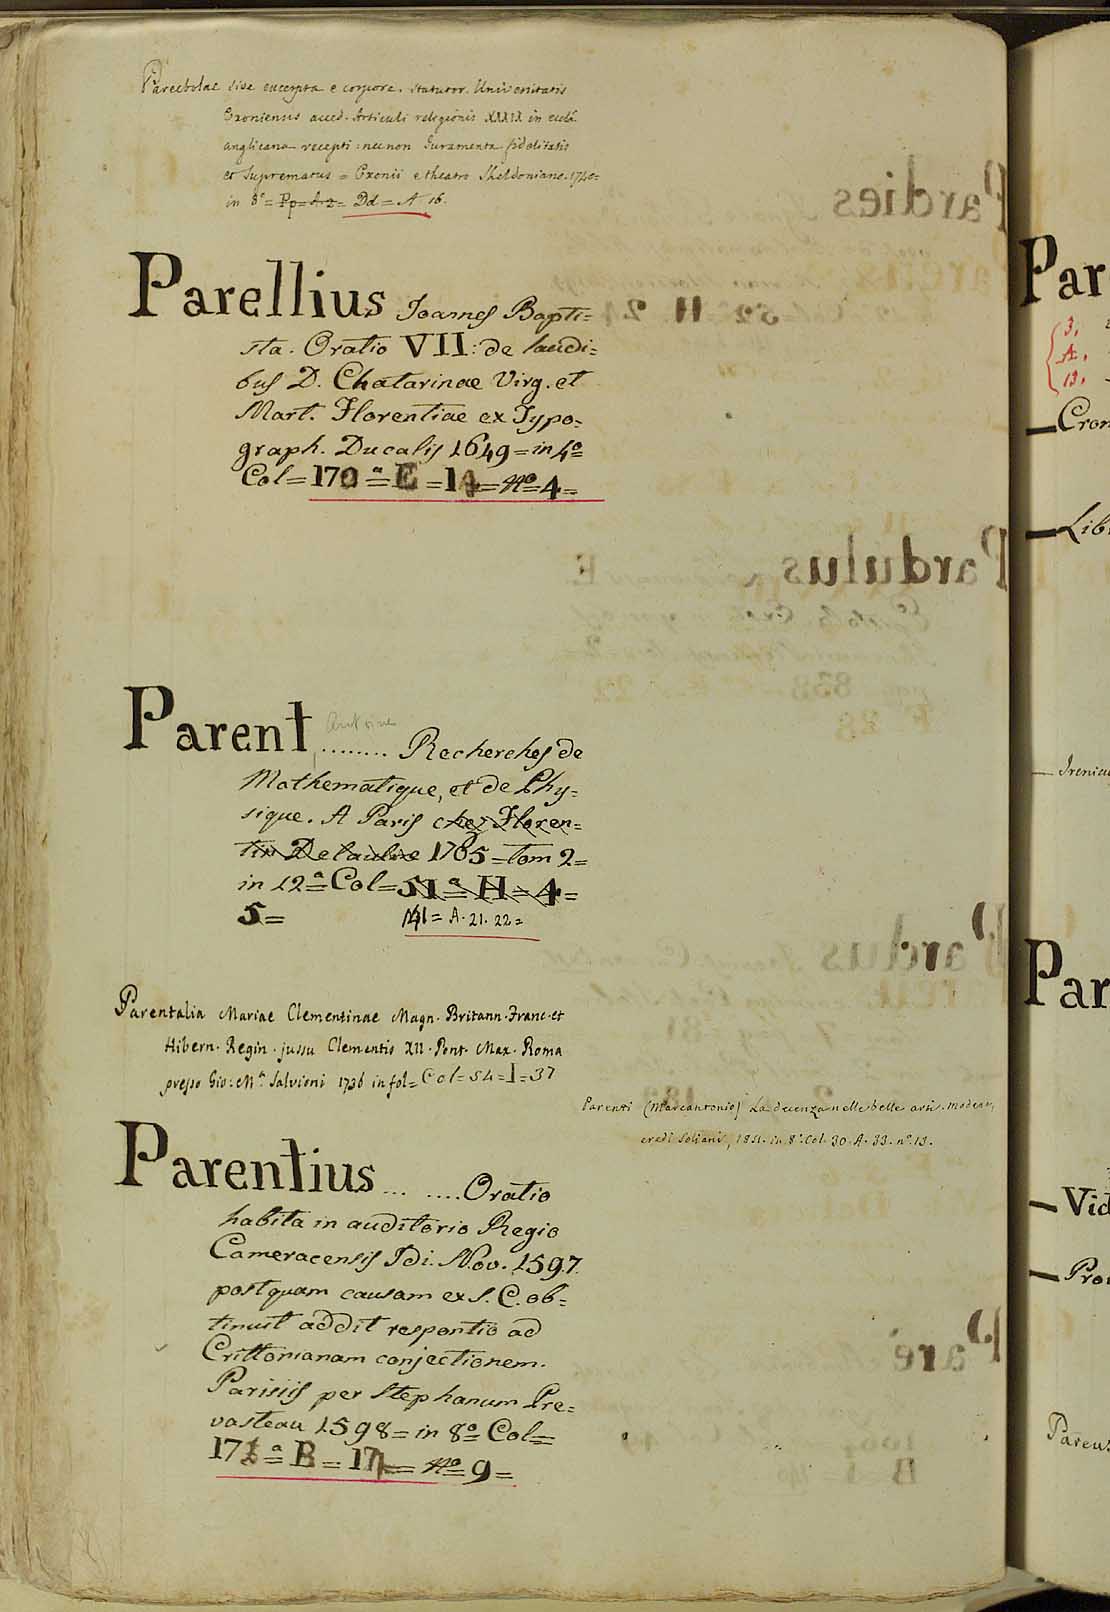 Parecbolae sive excerpta e corpore. statutor. Universitatis
Oxoniensis acced. Articuli religionis XXXIX in eccl.
anglicana recepti: nec non Juramenta fidelitatis
et Suprematus = Oxonii e theatro Sheldoniano. 1740=
in 8°= Pp= A 2= Dd = A 16.
Parellius Joannes Bapti=
sta. Oratio VII: de laudi=
bus D. Chatarinae Virg. et
Mart. Florentiae ex Typo=
graph. Ducalis 1649= in 4°=
Col= 170ª= E = 14= N°= 4=
Antoine
Parent ........ Recherches de
Mathematique, et de Phy=
sique. A Paris chez Floren=
tin Delaulne 1705= tom 2=
in 12ª= Col= 51ª= H= 4=
5= 141= A. 21. 22=
Parentalia Mariae Clementinae Magn. Britann. Franc. et
Hibern. Regin. jussu Clementis XII. Pont. Max. Roma
presso Gio: Mª. Salvioni 1736 in fol= Col= 54= I= 37
Parenti (Marcantonio) La decenza nelle belle arti. Modena,
eredi Soliani, 1851. in 8°. Col. 30. A. 33. n°. 13.
Parentius ... .... Oratio
habita in auditorio Regio
Cameracensis Idi. Nov. 1597.
postquam causam ex S. C. ob=
tinuit addit respontio ad
Crittonianam conjectionem.
Parisiis per Stephanum Pre=
vasteau 1598= in 8°= Col=
171ª= B= 17= N°= 9=
Par
3.
A.
13.
Cron
Libr
Par
Vid